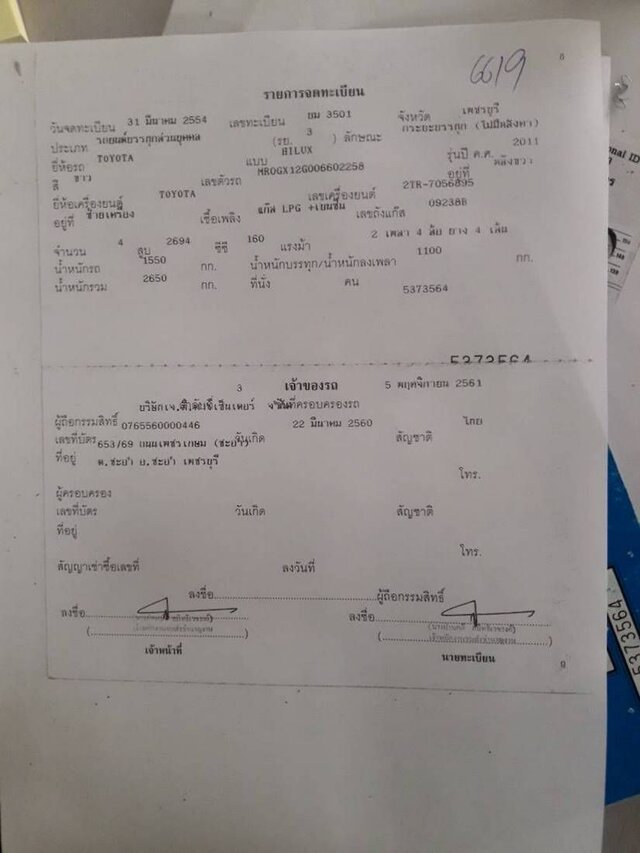 6619
8
รายการจดทะเบียน
วันจดทะเบียน 31 มีนาคม 2554 เลขทะเบียน ยม 3501 จังหวัด เพชรบุรี
ประเภท รถยนต์บรรทุกส่วนบุคคล (รย. 3 ) ลักษณะ กระบะบรรทุก (ไม่มีหลังคา)
ยี่ห้อรถ TOYOTA แบบ HILUX รุ่นปี ค.ศ. 2011
สี ขาว เลขตัวรถ MR0GX12G006602258 อยู่ที่
ยี่ห้อเครื่องยนต์ TOYOTA เลขเครื่องยนต์ 2TR-7056895
อยู่ที่ ซ้ายเครื่อง เชื้อเพลิง แก๊ส LPG +เบนซิน เลขถังแก๊ส 09238B
จำนวน 4 สูบ 2694 ซีซี 160 แรงม้า 2 เพลา 4 ล้อ ยาง 4 เส้น
น้ำหนักรถ 1550 กก. น้ำหนักบรรทุก/น้ำหนักลงเพลา 1100 กก.
น้ำหนักรวม 2650 กก. ที่นั่ง คน 5373564
5373564
3 เจ้าของรถ 5 พฤศจิกายน 2561
วันที่ครอบครองรถ
ผู้ถือกรรมสิทธิ์
เลขที่บัตร 0765560000446 วันเกิด 22 มีนาคม 2560 สัญชาติ ไทย
ที่อยู่ 653/69 ถนนเพชรเกษม (ชะอำ)
ต.ชะอำ อ.ชะอำ เพชรบุรี
โทร.
ผู้ครอบครอง
เลขที่บัตร วันเกิด สัญชาติ
ที่อยู่
โทร.
สัญญาเช่าซื้อเลขที่ ลงวันที่
ลงชื่อ ผู้ถือกรรมสิทธิ์
ลงชื่อ ลงชื่อ
เจ้าหน้าที่ นายทะเบียน
9
5373564